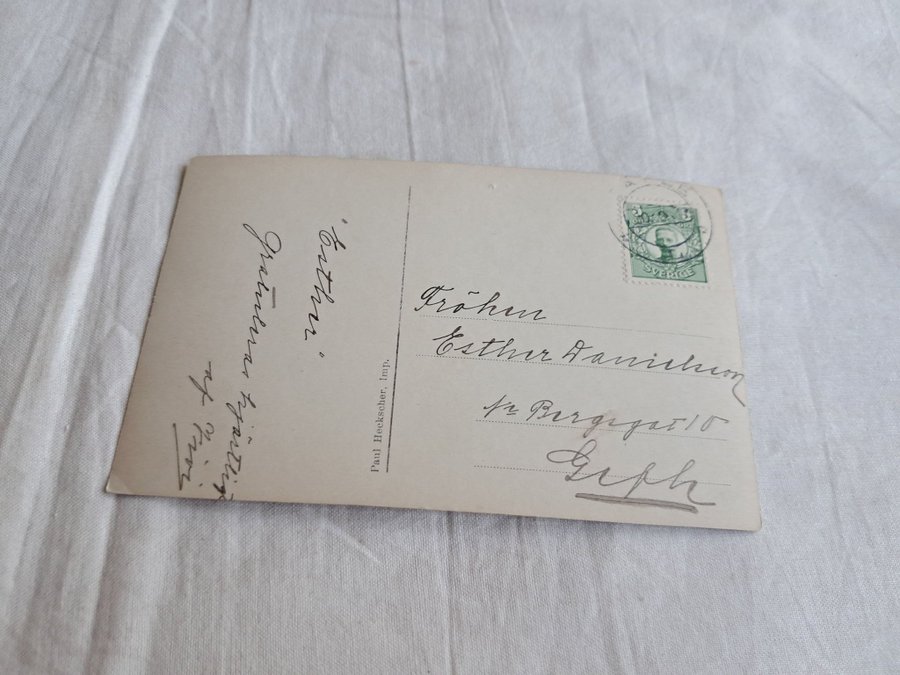 "Esther"
Gratuleras hjärtligt
af
Paul Heckscher, Imp.
5 5
SVERIGE
Fröken
Esther Danielsson
Na Bergsgat 10
Gefle